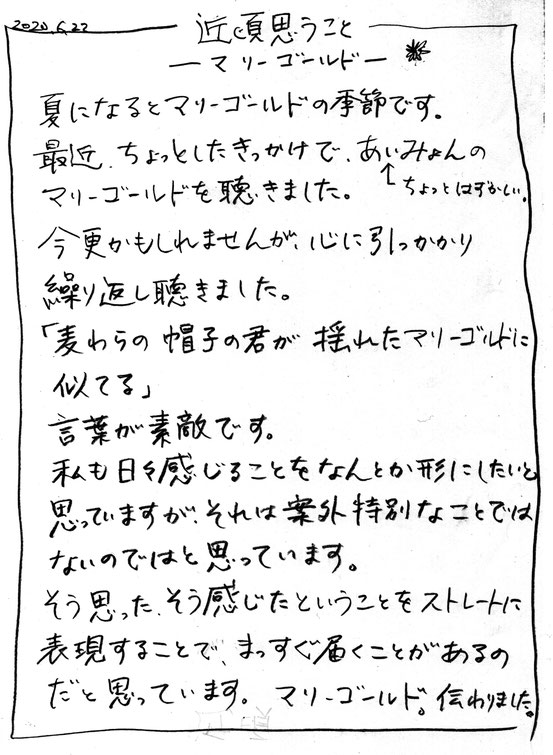 2020.6.22
近頃思うこと
ーマリーゴールドー
夏になるとマリーゴールドの季節です。
最近、ちょっとしたきっかけで、あいみょんの
マリーゴールドを聴きました。
↑ちょっとはずかしい。
今更かもしれませんが、心に引っかかり
繰り返し聴きました。
「麦わらの帽子の君が 揺れたマリーゴルドに
似てる」
言葉が素敵です。
私も日々感じることをなんとか形にしたいと
思っていますが、それは案外特別なことでは
ないのではと思っています。
そう思った、そう感じたということをストレートに
表現することで、まっすぐ届くことがあるの
だと思っています。 マリーゴールド。伝わりました。